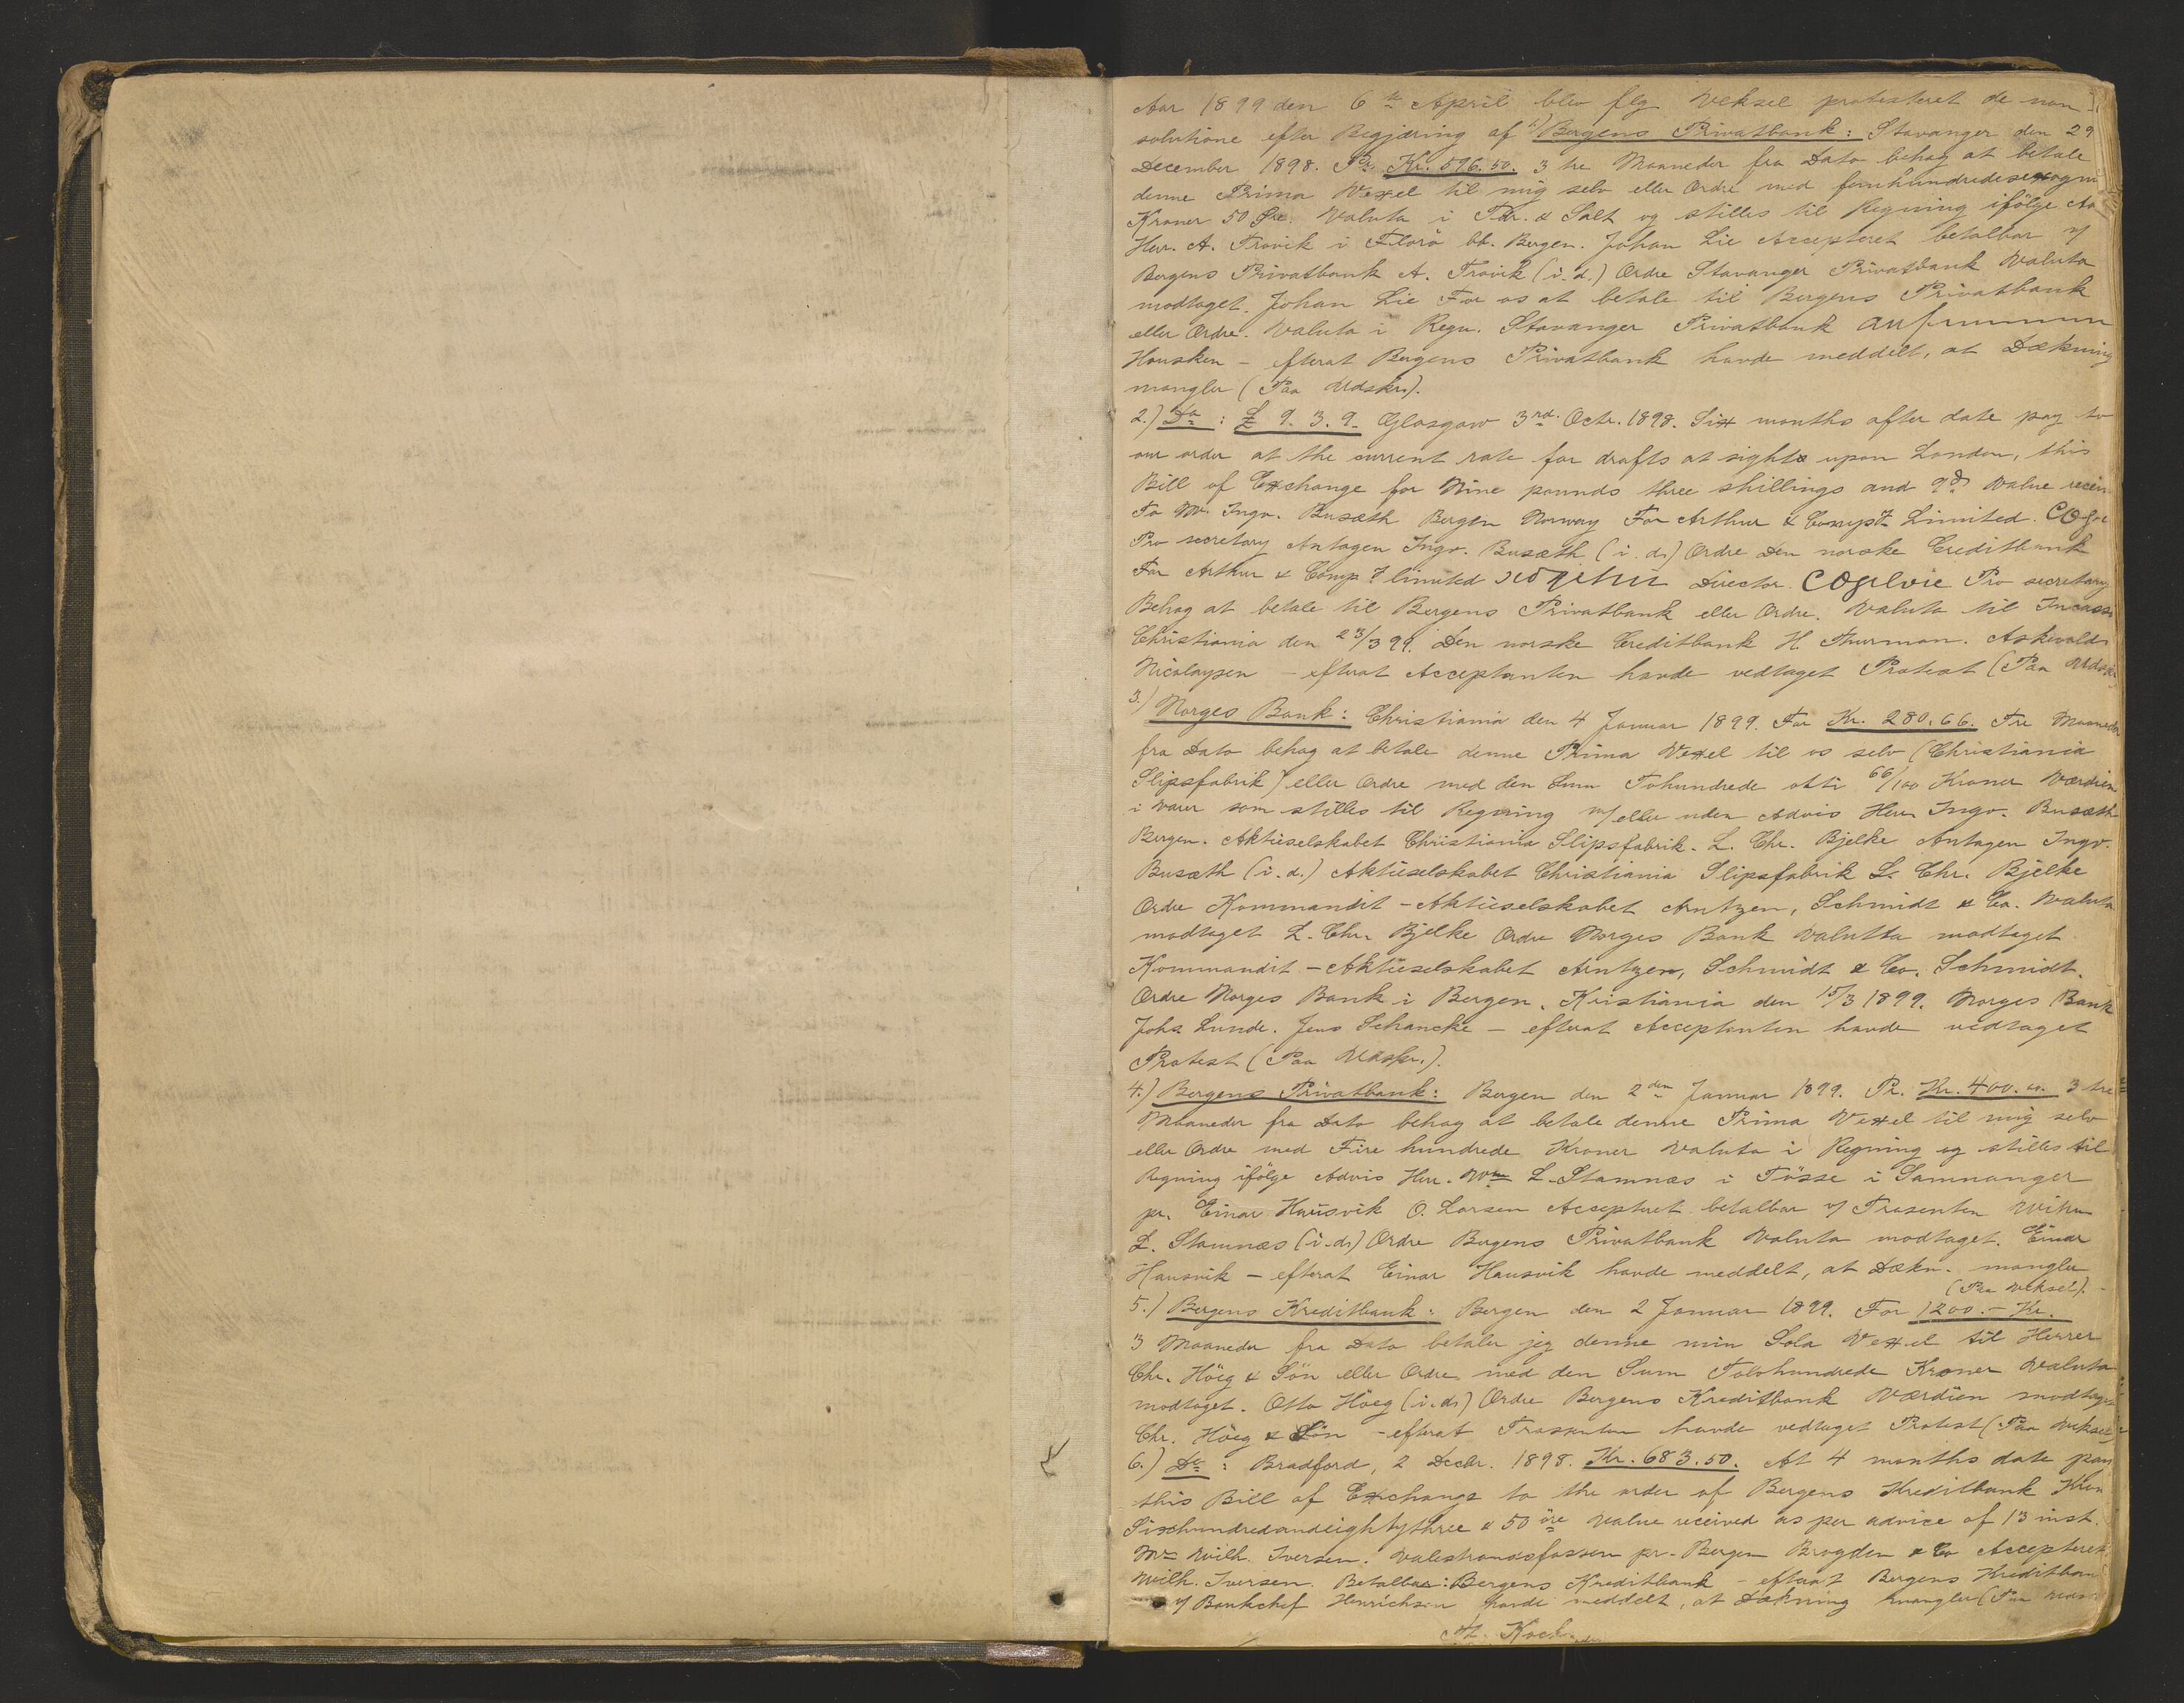 Aar 1899 den 6te April blev flg. Veksel protesteret de non
solutione efter Begjæring af 1.) Bergens Privatbank: Stavanger den 29
December 1898. Pr. Kr. 596.50. 3 tre Maaneder fra Dato behag at betale
denne Prima Vexel til mig selv eller Ordre med femhundredesexogni
Kroner 50 Øre. Valuta i Tdr. & Salt og stilles til Regning ifölge Av
Herr. A. Trovik i Florö bb. Bergen. Johan Lie Accepteret betalbar v/
Bergens Privatbank A. Trovik (i. d.) Ordre Stavanger Privatbank Valuta
modtaget. Johan Lie For os at betale til Bergens Privatbank
eller Ordre. Valuta i Regn. Stavanger Privatbank
Housken - efterat Bergens Privatbank havde meddelt, at Dækning
mangler (Paa Udskr.).
2.) Do : £ 9. 3. 9. Glasgow 3rd. Octr. 1898. Six months after date pay to
our order at the current rate for drafts at sight upon London, this
Bill of Exchange for Nine pounds three shillings and 9d. Value receiv
To Mr. Ingv. Busæth Bergen Norway For Arthur & Compy Limited.
Pro secretary Antagen Ingv. Busæth (i. d.) Ordre Den norske Creditbank
For Arthur & Compy limited Director. COgilvie Pro secretary
Behag at betale til Bergens Privatbank eller Ordre. Valuta til Incasso
Christiania den 23/3 99. Den norske Creditbank H. Thurman. Askevolds
Nicolaysen - efterat Acceptanten havde vedtaget Protest (Paa Udskr.)
3.) Norges Bank: Christiania den 4 Januar 1899. For Kr. 280.66. Tre Maaneder
fra Dato behag at betale denne Prima Vexel til os selv (Christiania
Slipsfabrik) eller Ordre med den Sum Tohundrede otti 66/100 Kroner Værdien
i Varer som stilles til Regning m/ eller uden Advis Herr Ingv. Busæth
Bergen. Aktieselskabet Christiania Slipsfabrik. L. Chr. Bjelke Antagen Ingv.
Busæth (i. d.) Aktieselskabet Christiania Slipsfabrik L. Chr. Bjelke
Ordre Kommandit-Aktieselskabet Arntzen, Schmidt & Co. Valuta
modtaget L. Chr. Bjelke Ordre Norges Bank Valutta modtaget
Kommandit-Aktieselskabet Arntzen, Schmidt & Co. Schmidt.
Ordre Norges Bank i Bergen. Kristiania den 15/3 1899. Norges Bank
Johs Lunde. Jens Schancke - efterat Acceptanten havde vedtaget
Protest (Paa Udskr.).
4.) Bergens Privatbank: Bergen den 2den Januar 1899. Pr. Kr. 400.00. 3 tre
Maaneder fra Dato behag at betale denne Prima Vexel til mig selv
eller Ordre med Fire hundrede Kroner Valuta i Regning og stilles til
Regning ifölge Advis Herr. Wm L. Stamnæs i Tösse i Samnanger
pr. Einar Hausvik O. Larsen Accepteret betalbar v/ Trasenten
L. Stamnæs (i. d.) Ordre Bergens Privatbank Valuta modtaget. Einar
Hausvik - efterat Einar Hausvik havde meddelt, at Dækn. mangler
(Paa Veksel).
5.) Bergens Kreditbank: Bergen den 2 Januar 1899. For 1200.- Kr.
3 Maaneder fra Dato betaler jeg denne min Sola Vexel til Herrer
Chr. Höeg & Sön eller Ordre med den Sum Tolvhundrede Kroner Valuta
modtaget. Otto Höeg (i. d.) Ordre Bergens Kreditbank Værdien modtaget
Chr. Höeg & Sön - efterat Trassenten havde vedtaget Protest (Paa Veksel)
6.) Do : Bradford, 2 Decbr. 1898. Kr. 683.50. At 4 months date pay
this Bill of Exchange to the order of Bergens Kreditbank Kron
Sixhundredandeightythree & 50 öre Value received as per advice of 13 inst.
Mr Wilh. Iversen. Valestrandsfossen pr. Bergen Brogden & Co Accepteret
Wilh. Iversen. Betalbar: Bergens Kreditbank - efterat Bergens Kreditban
v/ Bankchef Henrichsen havde meddelt, at Dækning mangler (Paa
A. Koch